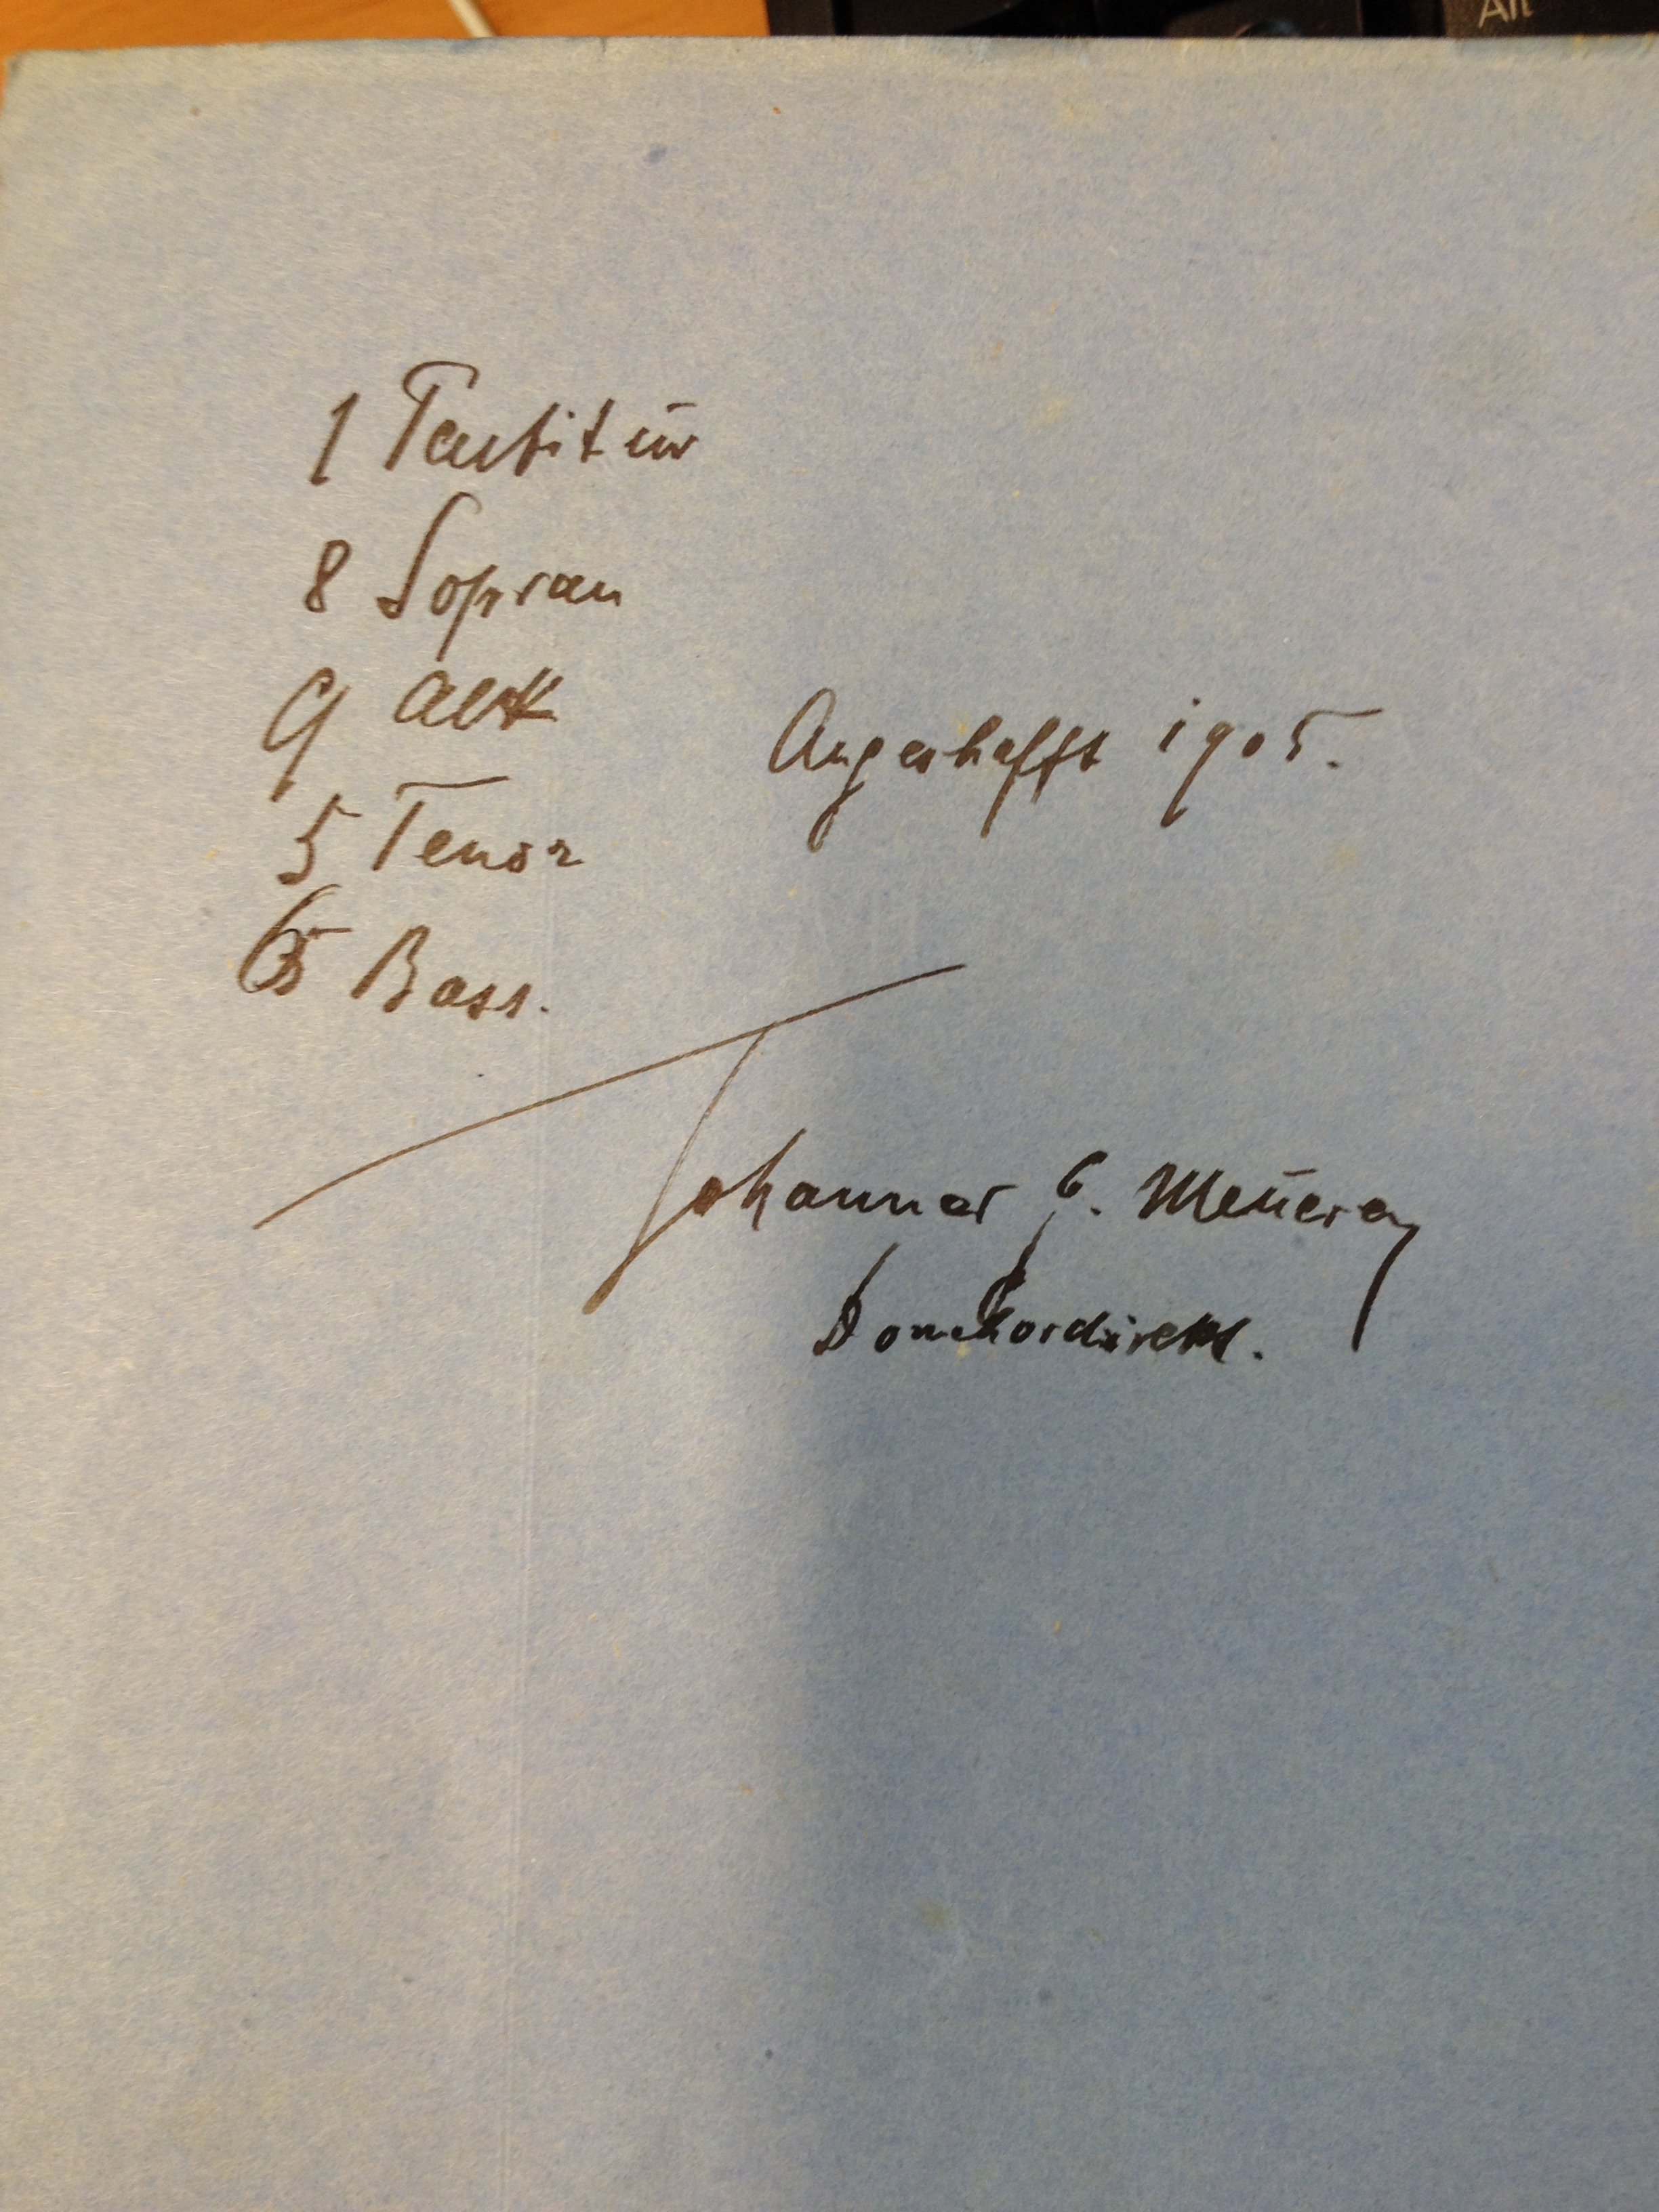 Alt
1 Partitur
8 Sopran
9 Alt
Angeschafft 1905.
5 Tenor
6 Bass.
Johannes G. Meuerer
Domchordirekt.